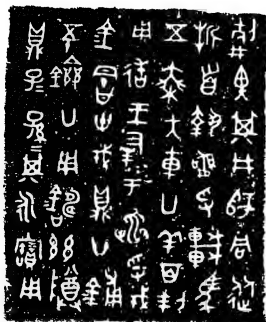 畀其井師同從
折首執訊孚車馬
五乘大車廿羊百
用造王羞于黽孚戎
金胄卅戎鼎廿鋪
五十鐱廿用鑄兹尊
鼎子子孫孫其永寶用